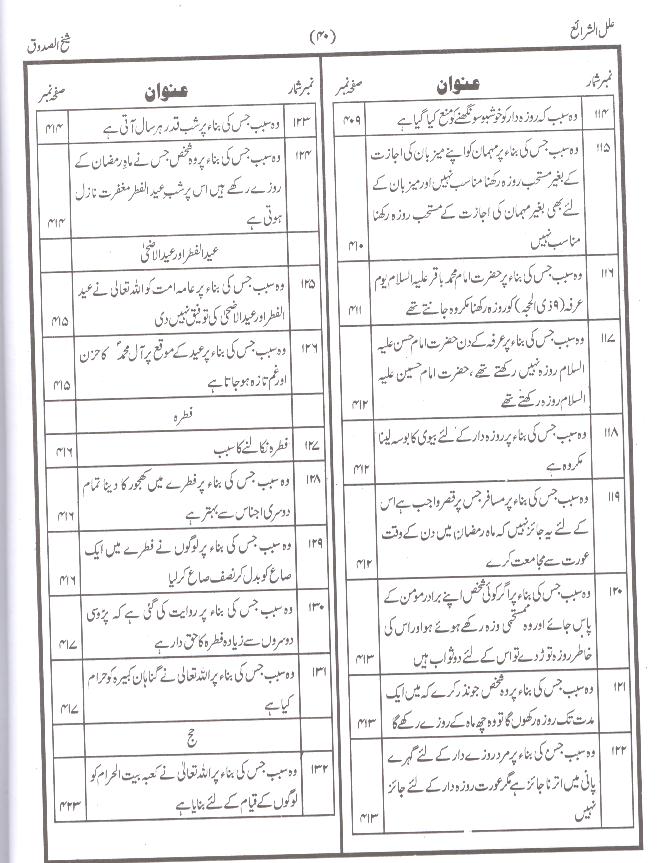 علل الشرائع
(۴۰)
شیخ الصدوق
نمبر شمار عنوان صفحہ نمبر
۱۱۴ وہ سبب کہ روزہ دار کو خوشبو سونگھنے کو منع کیا گیا ہے ۴۰۹
۱۱۵ وہ سبب جس کی بناء پر مہمان کو اپنے میزبان کی اجازت
کے بغیر مستحب روزہ رکھنا مناسب نہیں اور میزبان کے
لئے بھی بغیر مہمان کی اجازت کے مستحب روزہ رکھنا
مناسب نہیں ۴۱۰
۱۱۶ وہ سبب جس کی بناء پر حضرت امام محمد باقر علیہ السلام یوم
عرفہ (۹ ذی الحجہ) کو روزہ رکھنا مکروہ جانتے تھے ۴۱۱
۱۱۷ وہ سبب جس کی بناء پر عرفہ کے دن حضرت امام حسن علیہ
السلام روزہ نہیں رکھتے تھے ، حضرت امام حسین علیہ
السلام روزہ رکھتے تھے ۴۱۲
۱۱۸ وہ سبب جس کی بناء پر روزہ دار کے لئے بیوی کا بوسہ لینا
مکروہ ہے ۴۱۲
۱۱۹ وہ سبب جس کی بناء پر مسافر جس پر قصر واجب ہے اس
کے لئے یہ جائز نہیں کہ ماہ رمضان میں دن کے وقت
عورت سے مجامعت کرے ۴۱۲
۱۲۰ وہ سبب جس کی بناء پر اگر کوئی شخص اپنے برادر مومن کے
پاس جائے اور وہ مستحبی روزہ رکھے ہوئے ہو اور اس کی
خاطر روزہ توڑ دے تو اس کے لئے دو ثواب ہیں ۴۱۳
۱۲۱ وہ سبب جس کی بناء پر وہ شخص جو نذر کرے کہ میں ایک
مدت تک روزہ رکھوں گا تو وہ چھ ماہ کے روزے رکھے گا ۴۱۳
۱۲۲ وہ سبب جس کی بناء پر مرد روزے دار کے لئے گہرے
پانی میں اترنا جائز ہے مگر عورت روزہ دار کے لئے جائز
نہیں ۴۱۳
نمبر شمار عنوان صفحہ نمبر
۱۲۳ وہ سبب جس کی بناء پر شب قدر ہر سال آتی ہے ۴۱۴
۱۲۴ وہ سبب جس کی بناء پر وہ شخص جس نے ماہ رمضان کے
روزے رکھے ہیں اس پر شب عید الفطر مغفرت نازل
ہوتی ہے ۴۱۴
عید الفطر اور عید الاضحیٰ
۱۲۵ وہ سبب جس کی بناء پر عامہ امت کو اللہ تعالی نے عید
الفطر اور عید الاضحیٰ کی توفیق نہیں دی ۴۱۵
۱۲۶ وہ سبب جس کی بناء پر عید کے موقع پر آل محمدؐ کا حزن
اور غم تازہ ہو جاتا ہے ۴۱۵
فطرہ
۱۲۷ فطرہ نکالنے کا سبب ۴۱۶
۱۲۸ وہ سبب جس کی بناء پر فطرے میں کھجور کا دینا تمام
دوسری اجناس سے بہتر ہے ۴۱۶
۱۲۹ وہ سبب جس کی بناء پر لوگوں نے فطرے میں ایک
صاع کو بدل کر نصف صاع کر لیا ۴۱۶
۱۳۰ وہ سبب جس کی بناء پر روایت کی گئی ہے کہ پڑوسی
دوسروں سے زیادہ فطرہ کا حق دار ہے ۴۱۷
۱۳۱ وہ سبب جس کی بناء پر اللہ تعالی نے گناہان کبیرہ کو حرام
کیا ہے ۴۱۷
حج
۱۳۲ وہ سبب جس کی بناء پر اللہ تعالیٰ نے کعبہ بیت الحرام کو
لوگوں کے قیام کے لئے بنایا ہے ۴۲۳